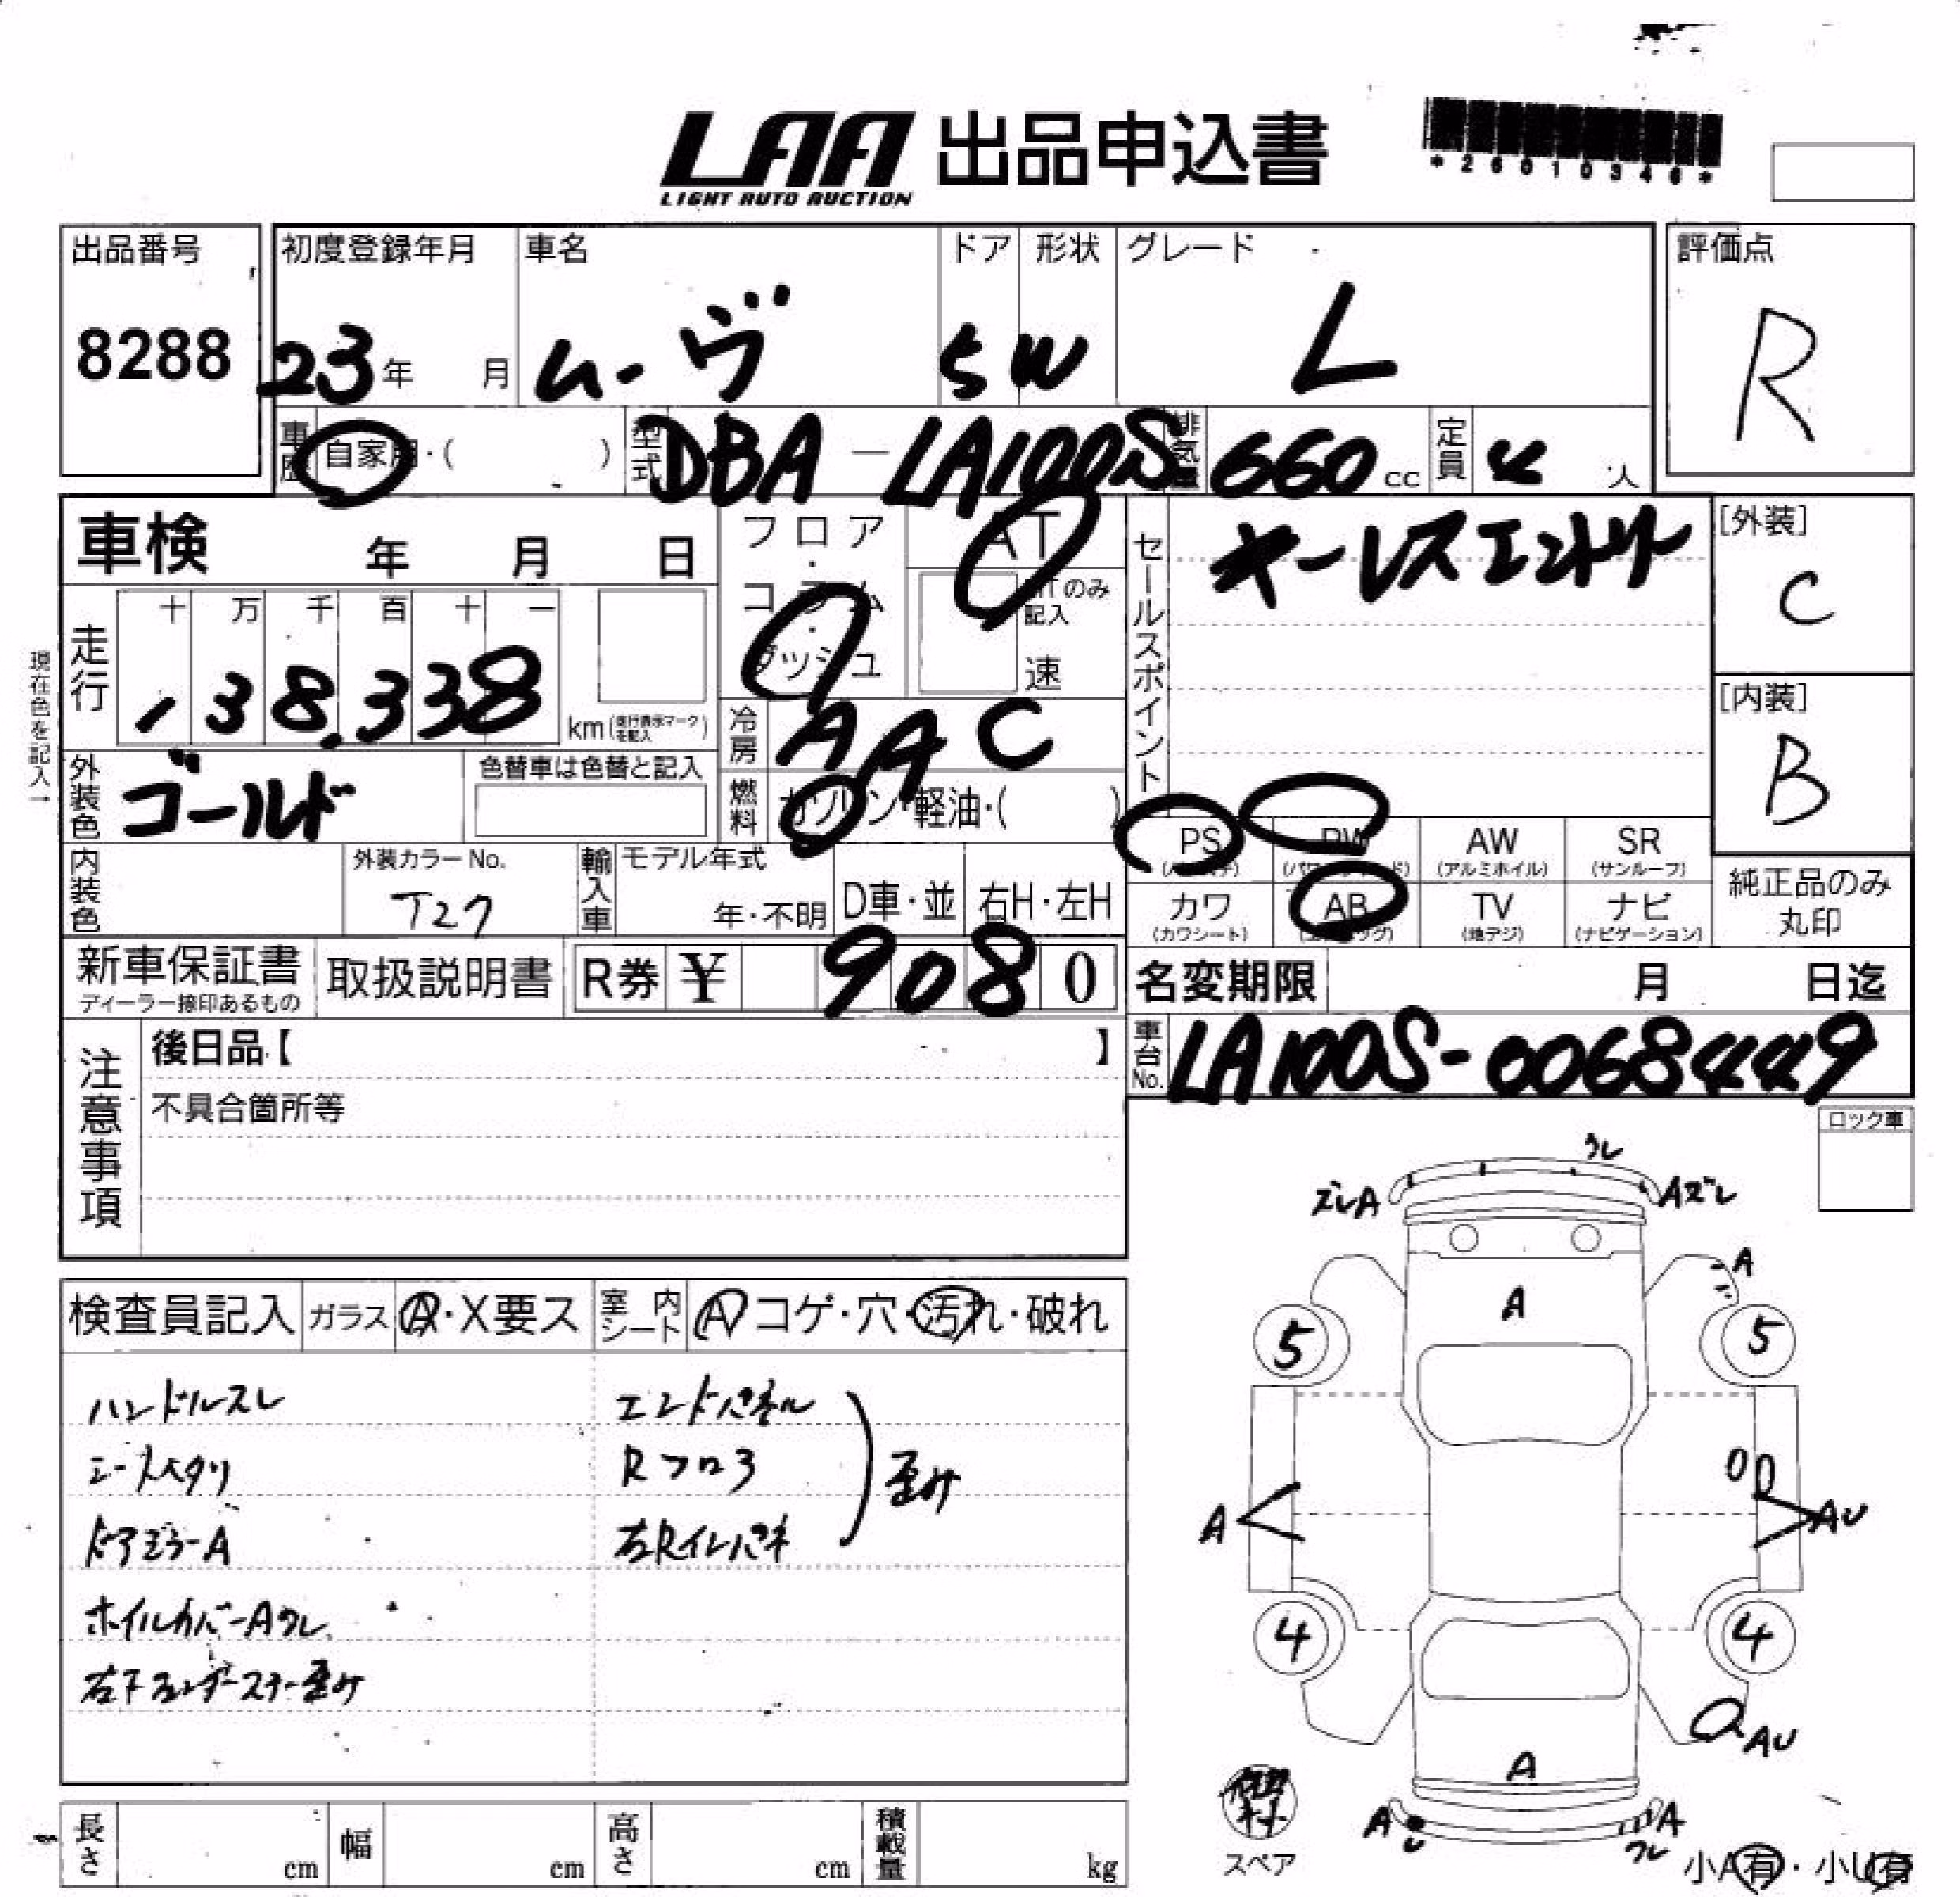 LAA 出品申込書
LIGHT AUTO AUCTION
*26010346*
出品番号
8288
初度登録年月 車名 ドア 形状 グレード
23年 月 ムーヴ 5 W L
評価点
R
車歴 自家用・( ) 型式 DBA-LA100S 排気量 660cc 定員 4人
車検 年 月 日
フロア・コラム・ダッシュ
AT
MTのみ記入
速
セールスポイント
キーレスエントリー
[外装]
C
[内装]
B
現在色を記入→
走行 十 万 千 百 十 一
138,338 km(走行表示マークを記入)
冷房 AAC
外装色 ゴールド 色替車は色替と記入
燃料 ガソリン・軽油・( )
PS PW AW SR
(パワステ) (パワーウィンド) (アルミホイル) (サンルーフ)
カワ AB TV ナビ
(カワシート) (エアバッグ) (地デジ) (ナビゲーション)
純正品のみ
丸印
内装色 外装カラーNo. T27
輸入車 モデル年式 年・不明 D車・並 右H・左H
新車保証書
ディーラー捺印あるもの
取扱説明書 R券 ¥ 9080
名変期限 月 日迄
車台No. LA100S-0068449
注意事項
後日品【 】
不具合箇所等
ロック車
検査員記入 ガラス A・X要ス 室内シート A コゲ・穴・汚れ・破れ
ハンドルスレ
ドアミラーA
ホイルカバーAワレ
エンドパネル
Rフロヨ
左Rインパネ
歪み
ワレ
ズレA
Aズレ
A
A
5
5
A
AU
4
4
AU
A
A
A
ワレ
スペア
小A有・小U有
長さ cm 幅 cm 高さ cm 積載量 kg